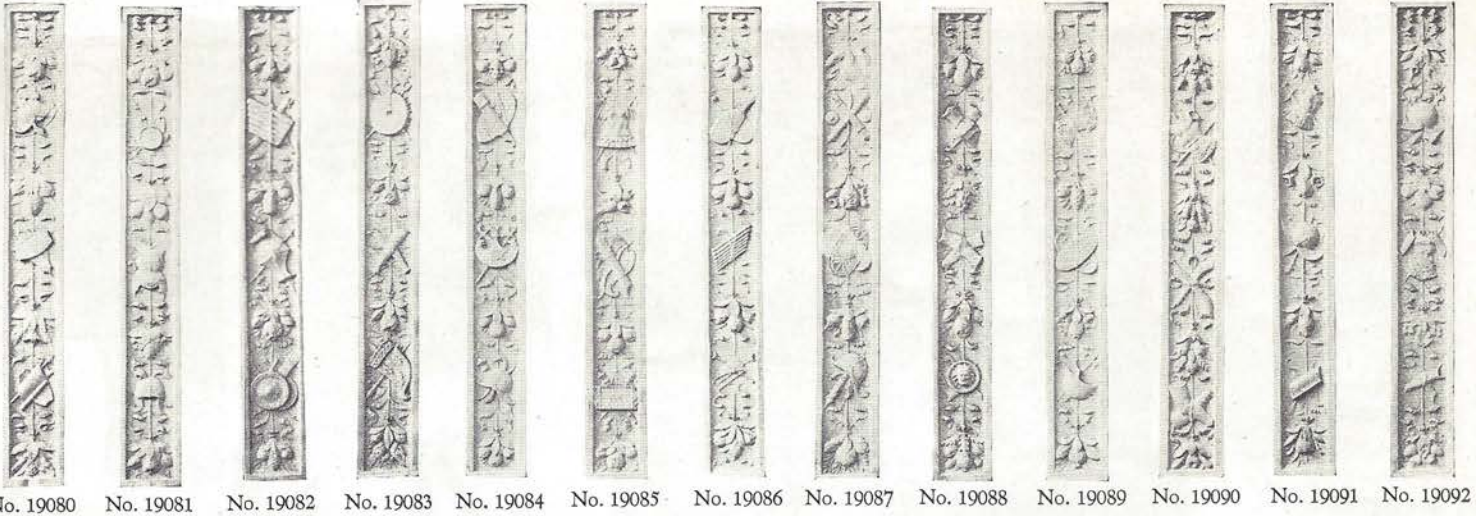 No. 19080 No. 19081 No. 19082 No. 19083 No. 19084 No. 19085 No. 19086 No. 19087 No. 19088 No. 19089 No. 19090 No. 19091 No. 19092